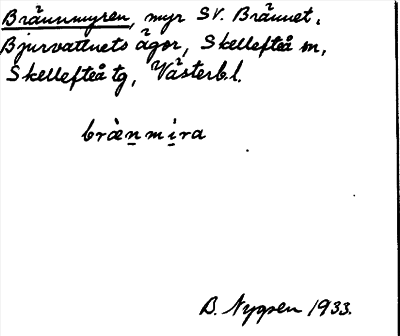 Brännmyren, myr SV. Brännet,
Bjurvattnets ägor, Skellefteå sn,
Skellefteå tg, Västerb.l.
bræ̀n̠ mi̠ra
B. Nygren 1933.